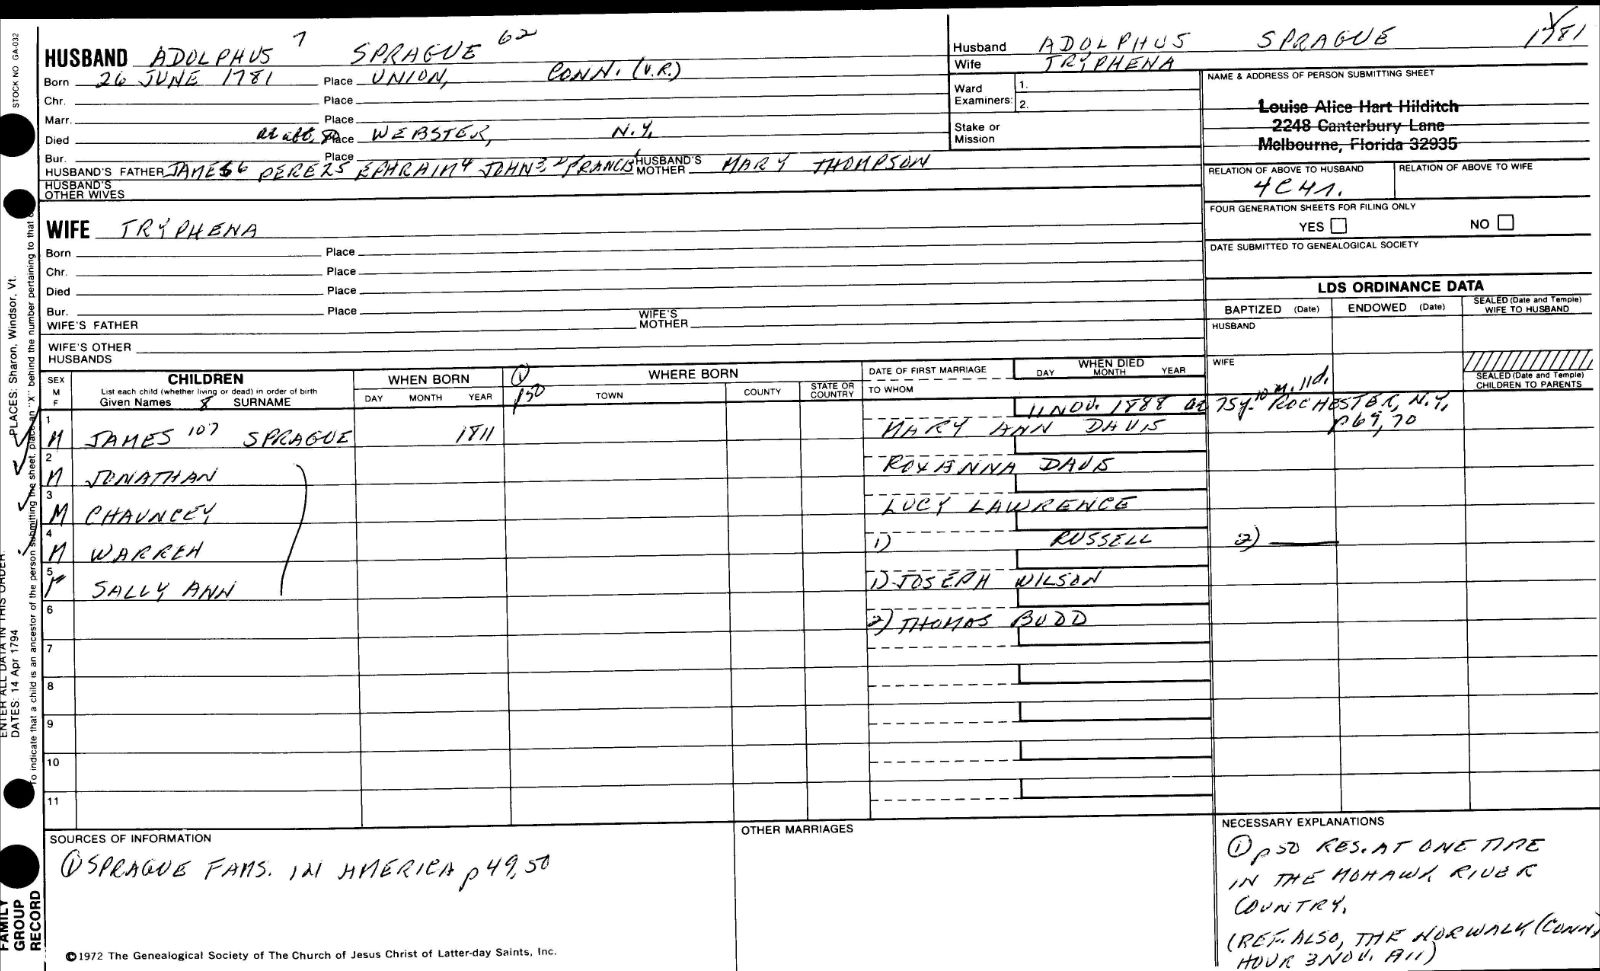 HUSBAND ADOLPHUS 7 SPRAGUE 62
Born 26 JUNE 1781 Place UNION, CONN. (V.R.)
Chr. Place
Marr. Place
Died Place WEBSTER, N.Y.
Bur. Place
HUSBAND'S FATHER JAMES6 PEREZ5 EPHRAIM4 JOHN3,2 FRANCIS1 HUSBAND'S MOTHER MARY THOMPSON
HUSBAND'S OTHER WIVES
WIFE TRYPHENA
Born Place
Chr. Place
Died Place
Bur. Place
WIFE'S FATHER WIFE'S MOTHER
WIFE'S OTHER HUSBANDS
Husband ADOLPHUS SPRAGUE 1781
Wife TRYPHENA
Ward Examiners: 1.
2.
Stake or Mission
NAME & ADDRESS OF PERSON SUBMITTING SHEET
Louise Alice Hart Hilditch
2248 Canterbury Lane
Melbourne, Florida 32935
RELATION OF ABOVE TO HUSBAND RELATION OF ABOVE TO WIFE
4C4r.
FOUR GENERATION SHEETS FOR FILING ONLY
YES NO
DATE SUBMITTED TO GENEALOGICAL SOCIETY
LDS ORDINANCE DATA
BAPTIZED (Date) ENDOWED (Date) SEALED (Date and Temple) WIFE TO HUSBAND
HUSBAND
WIFE
SEALED (Date and Temple) CHILDREN TO PARENTS
SEX M F
CHILDREN
List each child (whether living or dead) in order of birth
Given Names 8 SURNAME
WHEN BORN
DAY MONTH YEAR
① p50
WHERE BORN
TOWN COUNTY STATE OR COUNTRY
DATE OF FIRST MARRIAGE
TO WHOM
WHEN DIED
DAY MONTH YEAR
11 NOV. 1888 at 75y. 10 m. 11d. ROCHESTER, N.Y.
1 M JAMES 107 SPRAGUE 1811 MARY ANN DAVIS p69,70
2 M JONATHAN ROXANNA DAVIS
3 M CHAUNCEY LUCY LAWRENCE
4 M WARREN 1) RUSSELL 2)
5 F SALLY ANN 1) JOSEPH WILSON
6 2) THOMAS BUDD
7
8
9
10
11
SOURCES OF INFORMATION
① SPRAGUE FAMS. IN AMERICA p49,50
OTHER MARRIAGES
NECESSARY EXPLANATIONS
① p50 RES. AT ONE TIME
IN THE MOHAWK RIVER
COUNTRY.
(REF. ALSO, THE NORWALK (CONN)
HOUR 3 NOV. A11)
©1972 The Genealogical Society of The Church of Jesus Christ of Latter-day Saints, Inc.
STOCK NO GA-032
PLACES: Sharon, Windsor, Vt.
ENTER ALL DATA IN THIS ORDER:
DATES: 14 Apr 1794
To indicate that a child is an ancestor of the person submitting the sheet, place an "X" behind the number pertaining to that
FAMILY
GROUP
RECORD